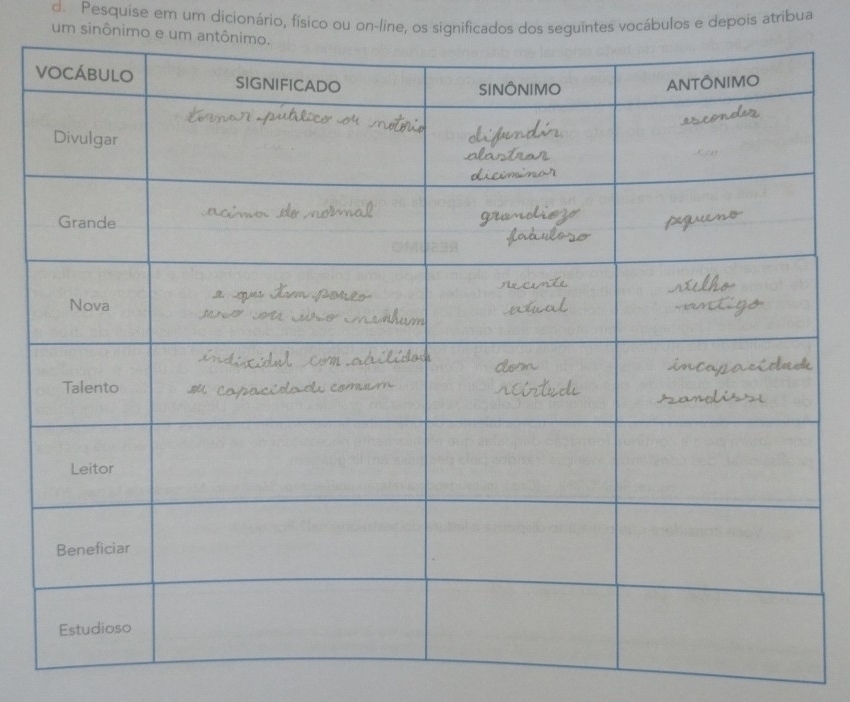 d. Pesquise em um dicionário, físico ou on-line, os significados dos seguintes vocábulos e depois atribua
um sinônimo e um antônimo.
VOCÁBULO SIGNIFICADO SINÔNIMO ANTÔNIMO
Divulgar
tornar público ou notorio
difundir
alastrar
diciminar
esconder
Grande
acima do normal
grandiozo
fabuloso
pequeno
Nova
e que tem pouco
uso ou uso nenhum
recente
atual
velho
antigo
Talento
com abilidade
ou capacidade comum
dom
incapacidade
Leitor
Beneficiar
Estudioso